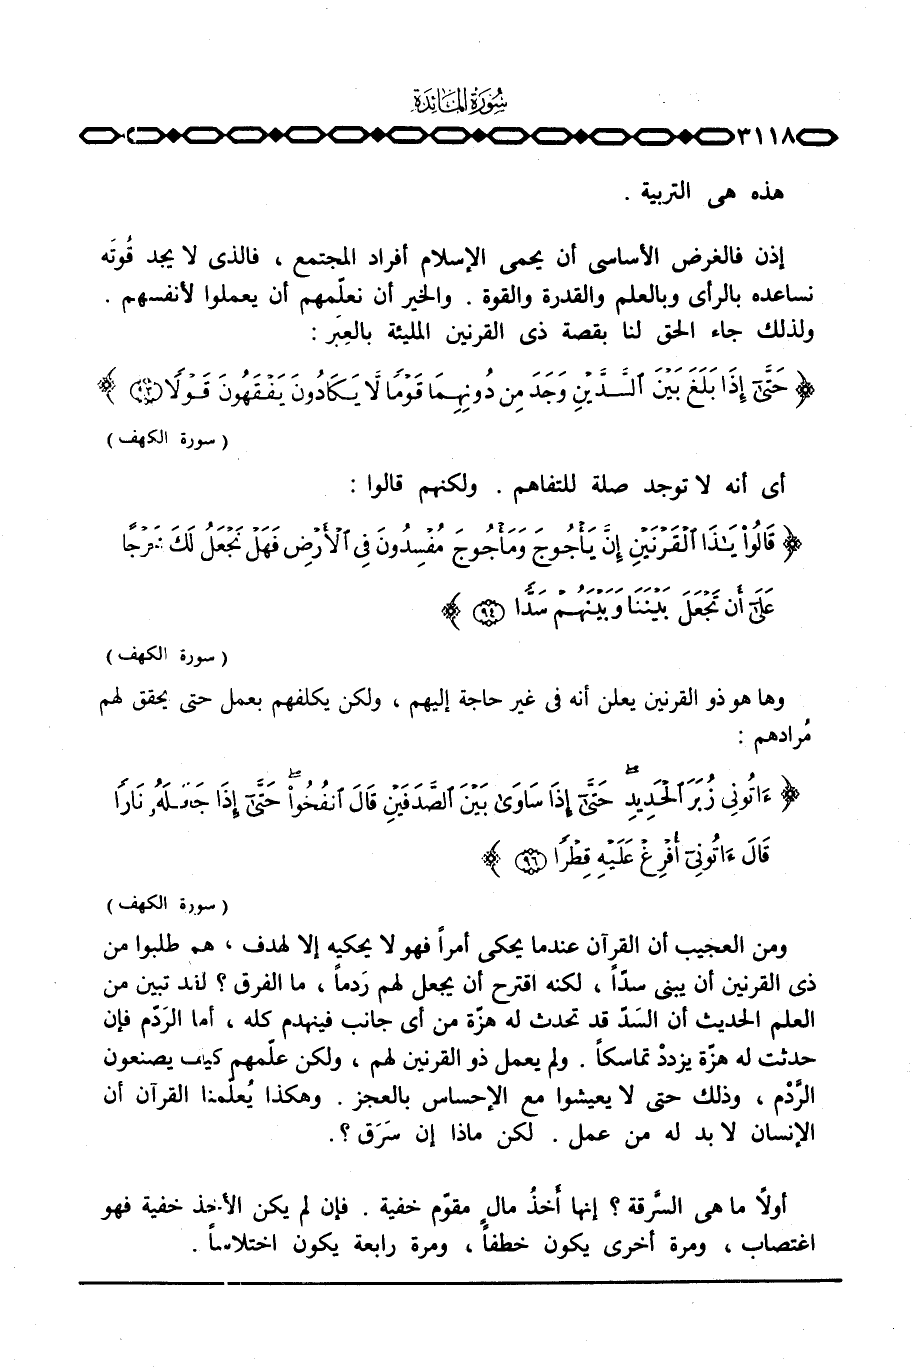 سورة المائدة
٣١١٨
هذه هى التربية .
إذن فالغرض الأساسى أن يحمى الإسلام أفراد المجتمع ، فالذى لا يجد قُوتَه
نساعده بالرأى وبالعلم والقدرة والقوة . والخير أن نعلّمهم أن يعملوا لأنفسهم .
ولذلك جاء الحق لنا بقصة ذى القرنين المليئة بالعِبَر :
﴿ حَتَّىٰٓ إِذَا بَلَغَ بَيْنَ ٱلسَّدَّيْنِ وَجَدَ مِن دُونِهِمَا قَوْمًا لَّا يَكَادُونَ يَفْقَهُونَ قَوْلًا ﴿٩٣﴾ ﴾
( سورة الكهف )
أى أنه لا توجد صلة للتفاهم . ولكنهم قالوا :
﴿ قَالُوا۟ يَٰذَا ٱلْقَرْنَيْنِ إِنَّ يَأْجُوجَ وَمَأْجُوجَ مُفْسِدُونَ فِى ٱلْأَرْضِ فَهَلْ نَجْعَلُ لَكَ خَرْجًا
عَلَىٰٓ أَن تَجْعَلَ بَيْنَنَا وَبَيْنَهُمْ سَدًّا ﴿٩٤﴾ ﴾
( سورة الكهف )
وها هو ذو القرنين يعلن أنه فى غير حاجة إليهم ، ولكن يكلفهم بعمل حتى يحقق لهم
مُرادهم :
﴿ ءَاتُونِى زُبَرَ ٱلْحَدِيدِ ۖ حَتَّىٰٓ إِذَا سَاوَىٰ بَيْنَ ٱلصَّدَفَيْنِ قَالَ ٱنفُخُوا۟ ۖ حَتَّىٰٓ إِذَا جَعَلَهُۥ نَارًا
قَالَ ءَاتُونِىٓ أُفْرِغْ عَلَيْهِ قِطْرًا ﴿٩٦﴾ ﴾
( سورة الكهف )
ومن العجيب أن القرآن عندما يحكى أمراً فهو لا يحكيه إلا لهدف ، هم طلبوا من
ذى القرنين أن يبنى سدّاً ، لكنه اقترح أن يجعل لهم رَدماً ، ما الفرق ؟ لقد تبين من
العلم الحديث أن السَدّ قد تحدث له هزّة من أى جانب فينهدم كله ، أما الرَدّم فإن
حدثت له هزّة يزددْ تماسكاً . ولم يعمل ذو القرنين لهم ، ولكن علّمهم كيف يصنعون
الرَّدْم ، وذلك حتى لا يعيشوا مع الإحساس بالعجز . وهكذا يُعلّمنا القرآن أن
الإنسان لا بد له من عمل . لكن ماذا إن سَرَق ؟.
أولًا ما هى السَّرقة ؟ إنها أَخذُ مالٍ مقوّم خفية . فإن لم يكن الأخذ خفية فهو
اغتصاب ، ومرة أخرى يكون خطفاً ، ومرة رابعة يكون اختلاساً .